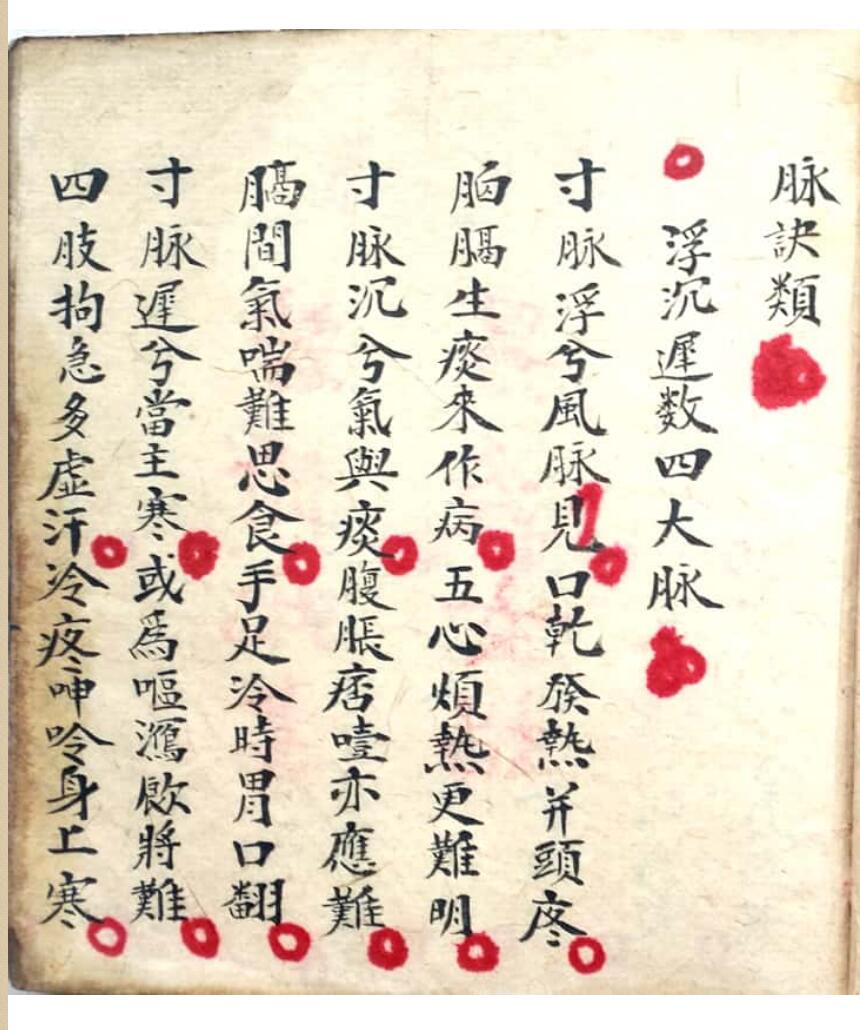 脉訣類
浮沉遲数四大脉
寸脉浮兮風脉見口乾發熱并頭疼
胸膈生痰來作病五心煩熱更難明
寸脉沉兮氣與痰腹脹痞噎亦應難
膈間氣喘難思食手足冷時胃口翻
寸脉遲兮當主寒或爲嘔瀉飲將難
四肢拘急多虛汗冷疼呻吟身上寒